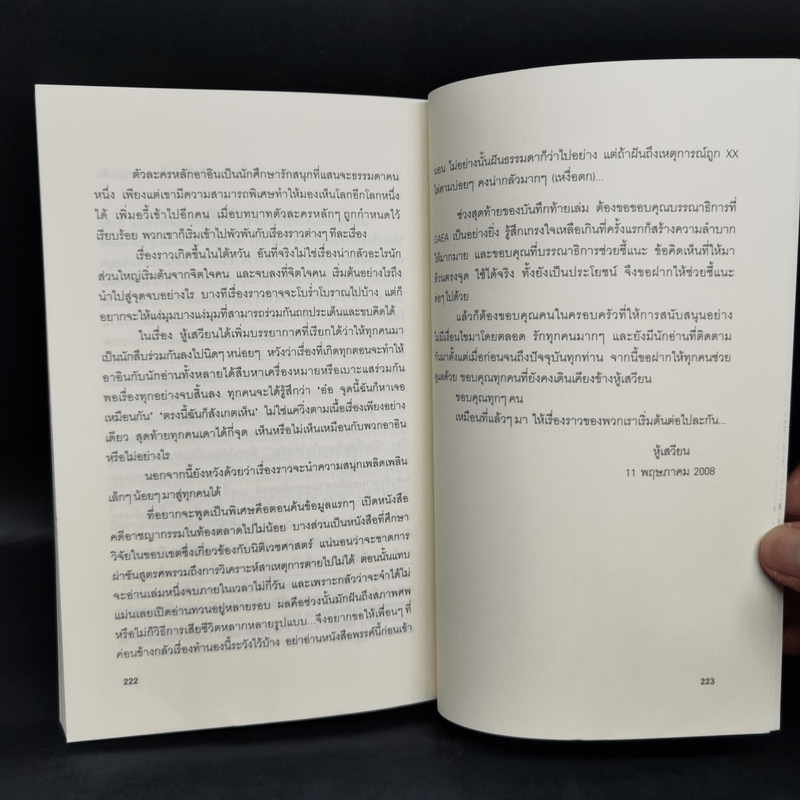 ตัวละครหลักอาอินเป็นนักศึกษารักสนุกที่แสนจะธรรมดาคน
หนึ่ง เพียงแต่เขามีความสามารถพิเศษทำให้มองเห็นโลกอีกโลกหนึ่ง
ได้ เพิ่มอวี้เข้าไปอีกคน เมื่อบทบาทตัวละครหลักๆ ถูกกำหนดไว้
เรียบร้อย พวกเขาก็เริ่มเข้าไปพัวพันกับเรื่องราวต่างๆ ทีละเรื่อง
เรื่องราวเกิดขึ้นในไต้หวัน อันที่จริงไม่ใช่เรื่องน่ากลัวอะไรนัก
ส่วนใหญ่เริ่มต้นจากจิตใจคน และจบลงที่จิตใจคน เริ่มต้นอย่างไรถึง
นำไปสู่จุดจบอย่างไร บางทีเรื่องราวอาจจะโบร่ำโบราณไปบ้าง แต่ก็
อยากจะให้แง่มุมบางแง่มุมที่สามารถร่วมกันถกประเด็นและขบคิดได้
ในเรื่อง หู้เสวียนได้เพิ่มบรรยากาศที่เรียกได้ว่าให้ทุกคนมา
เป็นนักสืบร่วมกันลงไปนิดๆ หน่อยๆ หวังว่าเรื่องที่เกิดทุกตอนจะทำให้
อาอินกับนักอ่านทั้งหลายได้สืบหาเครื่องหมายหรือเบาะแสร่วมกัน
พอเรื่องทุกอย่างจบสิ้นลง ทุกคนจะได้รู้สึกว่า 'อ๋อ จุดนี้ฉันก็หาเจอ
เหมือนกัน' 'ตรงนี้ฉันก็สังเกตเห็น' ไม่ใช่แค่วิ่งตามเนื้อเรื่องเพียงอย่าง
เดียว สุดท้ายทุกคนเดาได้กี่จุด เห็นหรือไม่เห็นเหมือนกับพวกอาอิน
หรือไม่อย่างไร
นอกจากนี้ยังหวังด้วยว่าเรื่องราวจะนำความสนุกเพลิดเพลิน
เล็กๆ น้อยๆ มาสู่ทุกคนได้
ที่อยากจะพูดเป็นพิเศษคือตอนค้นข้อมูลแรกๆ เปิดหนังสือ
คดีอาชญากรรมในท้องตลาดไปไม่น้อย บางส่วนเป็นหนังสือที่ศึกษา
วิจัยในขอบเขตซึ่งเกี่ยวข้องกับนิติเวชศาสตร์ แน่นอนว่าจะขาดการ
ผ่าชันสูตรศพรวมถึงการวิเคราะห์สาเหตุการตายไปไม่ได้ ตอนนั้นแทบ
จะอ่านเล่มหนึ่งจบภายในเวลาไม่กี่วัน และเพราะกลัวว่าจะจำได้ไม่
แม่นเลยเปิดอ่านทวนอยู่หลายรอบ ผลคือช่วงนั้นมักฝันถึงสภาพศพ
หรือไม่ก็วิธีการเสียชีวิตหลากหลายรูปแบบ...จึงอยากขอให้เพื่อนๆ ที่
ค่อนข้างกลัวเรื่องทำนองนี้ระวังไว้บ้าง อย่าอ่านหนังสือพรรค์นี้ก่อนเข้า
222
นอน ไม่อย่างนั้นฝันธรรมดาก็ว่าไปอย่าง แต่ถ้าฝันถึงเหตุการณ์ถูก XX
ไล่ตามบ่อยๆ คงน่ากลัวมากๆ (เหงื่อตก)...
ช่วงสุดท้ายของบันทึกท้ายเล่ม ต้องขอขอบคุณบรรณาธิการที่
GAEA เป็นอย่างยิ่ง รู้สึกเกรงใจเหลือเกินที่ครั้งแรกก็สร้างความลำบาก
ให้มากมาย และขอบคุณที่บรรณาธิการช่วยชี้แนะ ข้อคิดเห็นที่ให้มา
ล้วนตรงจุด ใช้ได้จริง ทั้งยังเป็นประโยชน์ จึงขอฝากให้ช่วยชี้แนะ
ต่อๆ ไปด้วย
แล้วก็ต้องขอบคุณคนในครอบครัวที่ให้การสนับสนุนอย่าง
ไม่มีเงื่อนไขมาโดยตลอด รักทุกคนมากๆ และยังมีนักอ่านที่ติดตาม
กันมาตั้งแต่เมื่อก่อนจนถึงปัจจุบันทุกท่าน จากนี้ขอฝากให้ทุกคนช่วย
ดูแลด้วย ขอบคุณทุกคนที่ยังคงเดินเคียงข้างหู้เสวียน
ขอบคุณทุกๆ คน
เหมือนที่แล้วๆ มา ให้เรื่องราวของพวกเราเริ่มต้นต่อไปละกัน...
หู้เสวียน
11 พฤษภาคม 2008
223